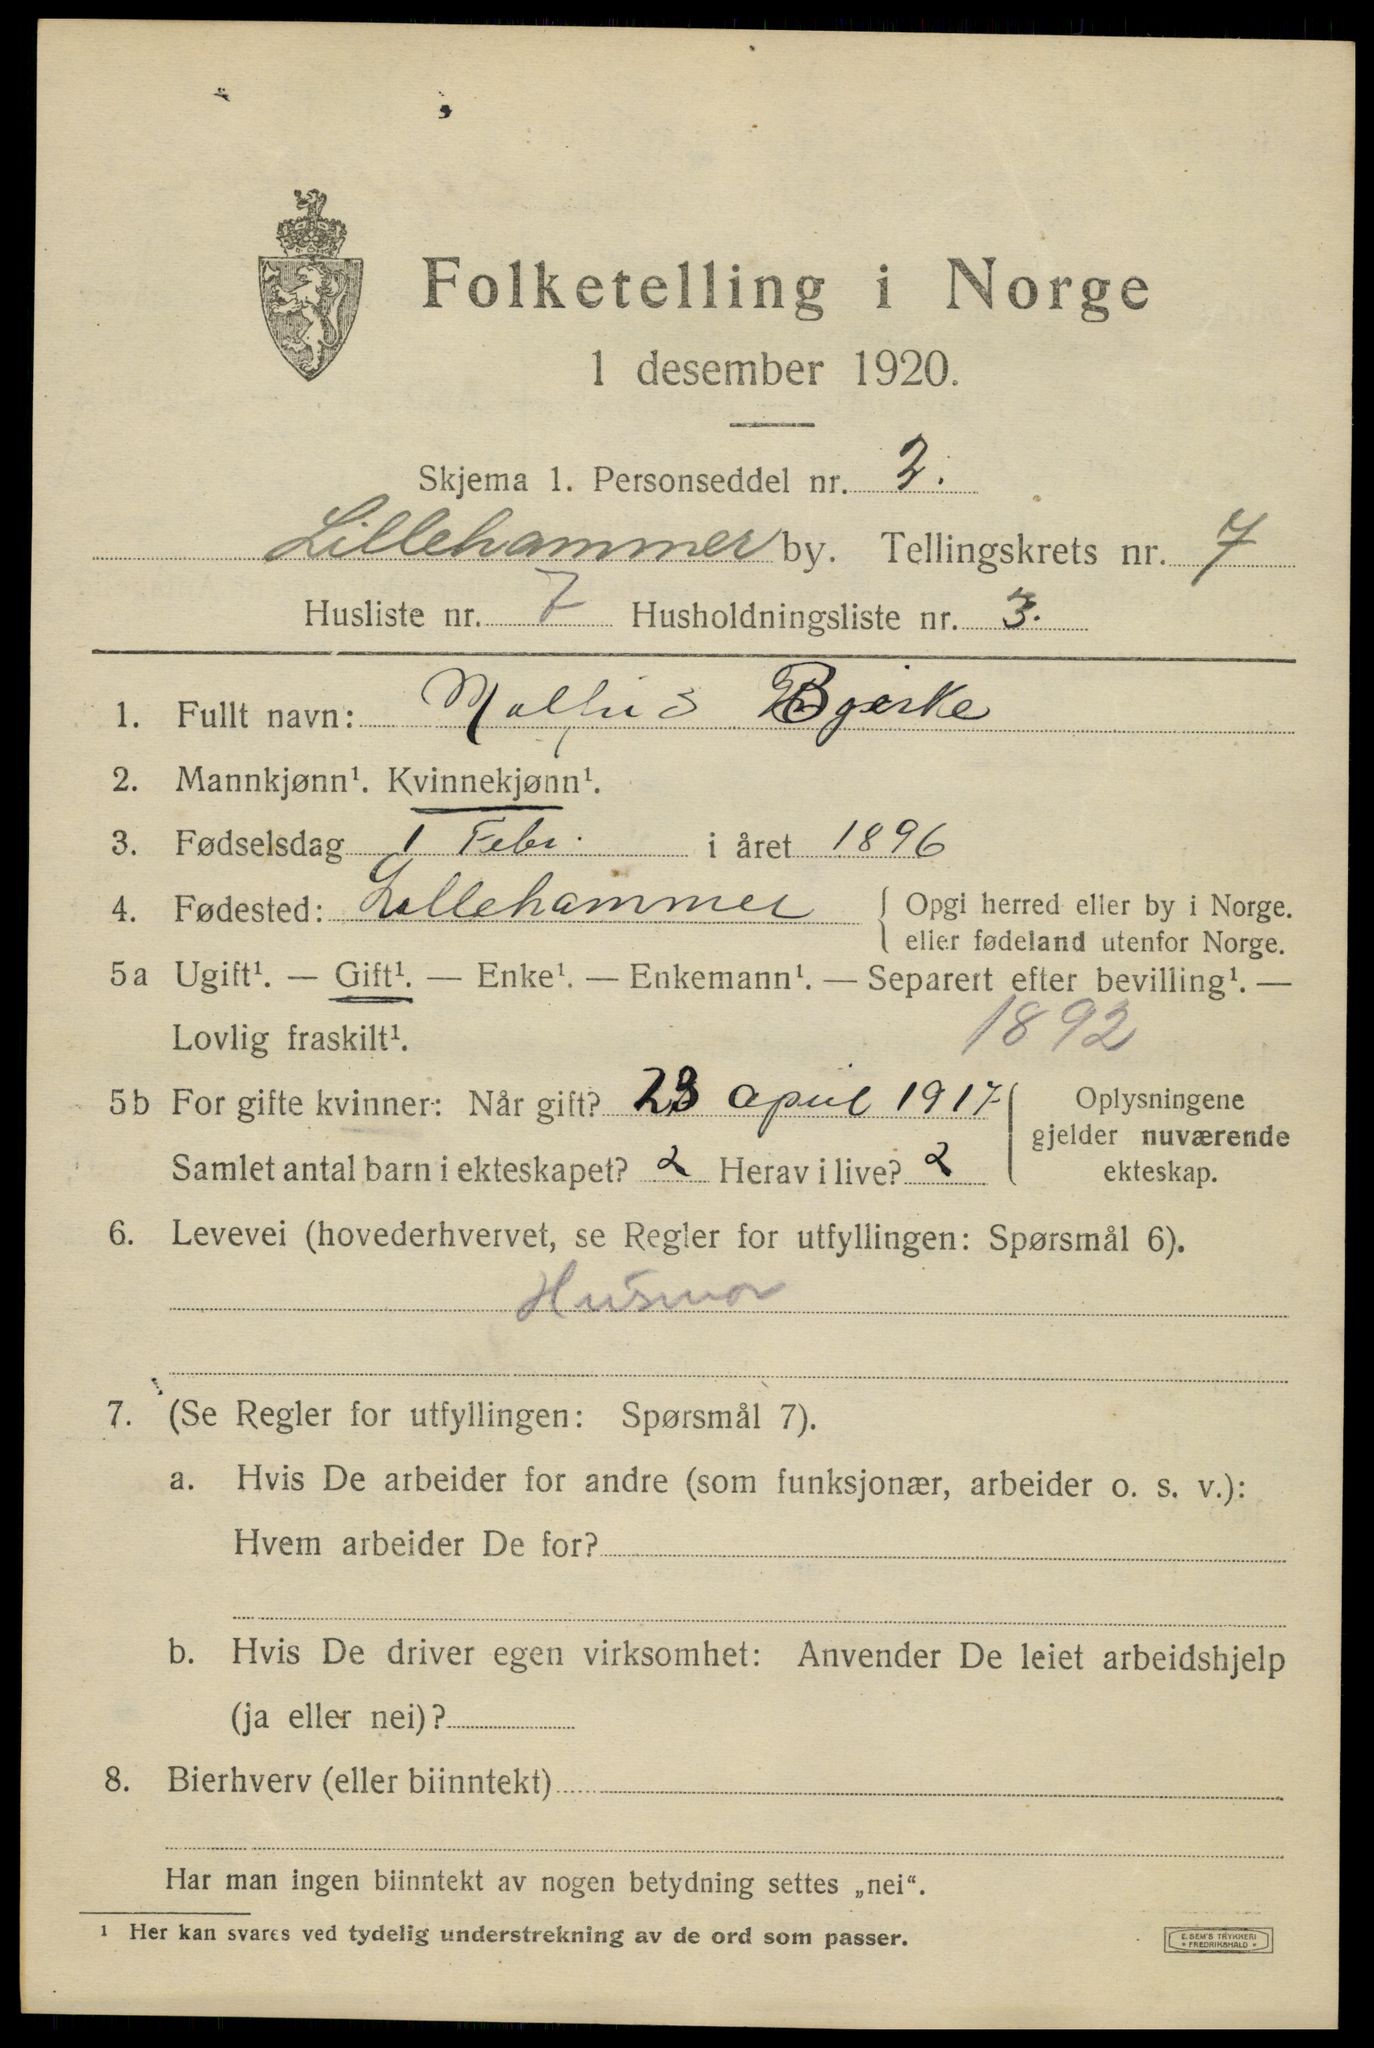 Folketelling i Norge
1 desember 1920.
Skjema 1. Personseddel nr. 2.
Lillehammer by. Tellingskrets nr. 7
Husliste nr. 7 Husholdningsliste nr. 3.
1. Fullt navn: Bjerke
2. Mannkjønn¹. Kvinnekjønn¹.
3. Fødselsdag 1 Febr. i året 1896
4. Fødested: Lillehammer { Opgi herred eller by i Norge.
eller fødeland utenfor Norge.
5a Ugift¹. — Gift¹. — Enke¹. — Enkemann¹. — Separert efter bevilling¹. —
Lovlig fraskilt¹. 1892
5b For gifte kvinner: Når gift? 23 april 1917 { Oplysningene
gjelder nuværende
Samlet antal barn i ekteskapet? 2 Herav i live? 2 ekteskap.
6. Levevei (hovederhvervet, se Regler for utfyllingen: Spørsmål 6).
Husmor
7. (Se Regler for utfyllingen: Spørsmål 7).
a. Hvis De arbeider for andre (som funksjonær, arbeider o. s. v.):
Hvem arbeider De for?
b. Hvis De driver egen virksomhet: Anvender De leiet arbeidshjelp
(ja eller nei)?
8. Bierhverv (eller biinntekt)
Har man ingen biinntekt av nogen betydning settes „nei“.
¹ Her kan svares ved tydelig understrekning av de ord som passer.
E. SEM'S TRYKKERI
* FREDRIKSHALD *